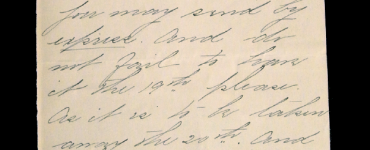 you may send by
express. And do
not fail to have
it the 19th please.
As it is to be taken
away the 20th. And